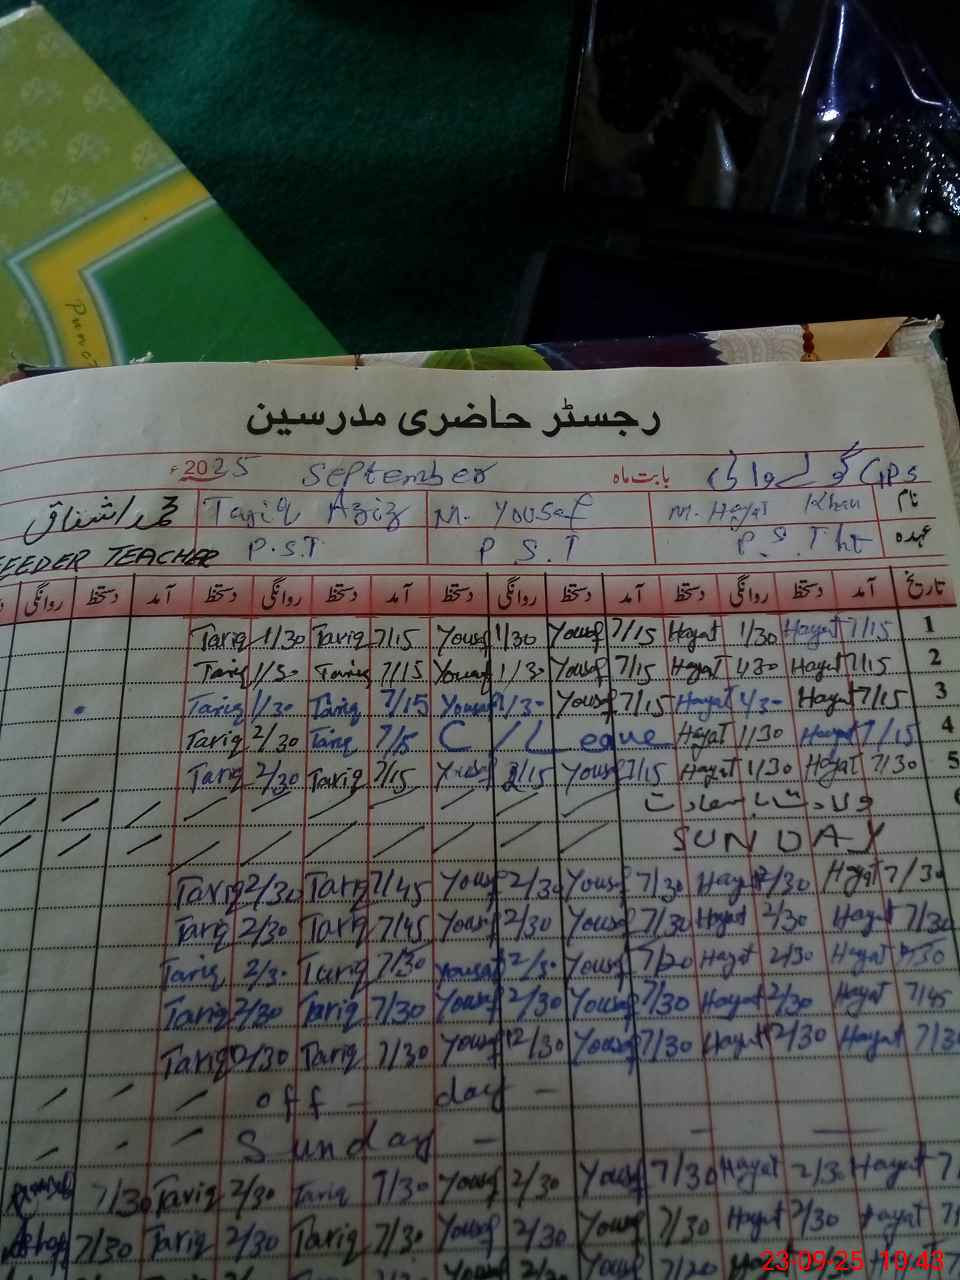 رجسٹر حاضری مدرسین
GPS گولے والی بابت ماہ September 2025ء
نام M. Hayat Khan M. Yousaf Tariq Aziz محمد اشفاق
عہدہ P.S.T ht P S.T P.S.T FEEDER TEACHER
تاریخ آمد دستخط روانگی دستخط آمد دستخط روانگی دستخط آمد دستخط روانگی دستخط آمد دستخط روانگی
1 7/15 Hayat 1/30 Hayat 7/15 Yousf 1/30 Yousf 7/15 Tariq 1/30 Tariq
2 7/15 Hayat 1/30 Hayat 7/15 Yousf 1/30 Yousaf 7/15 Tariq 1/30 Tariq
3 7/15 Hayat 1/30 Hayat 7/15 Yousf 1/30 Yousaf 7/15 Tariq 1/30 Tariq
4 7/15 Hayat 1/30 Hayat C/Leave 7/15 Tariq 2/30 Tariq
5 7/30 Hayat 1/30 Hayat 7/15 Yousf 2/15 Yousf 7/15 Tariq 2/30 Tariq
6 ولادت با سعادت
SUNDAY
7/30 Hayat 2/30 Hayat 7/30 Yousf 2/30 Yousf 7/45 Tariq 2/30 Tariq
7/30 Hayat 2/30 Hayat 7/30 Yousf 2/30 Yousf 7/45 Tariq 2/30 Tariq
Hayat 2/30 Hayat 7/20 Yousf 2/30 Yousaf 7/30 Tariq 2/30 Tariq
7/45 Hayat 2/30 Hayat 7/30 Yousf 2/30 Yousf 7/30 Tariq 2/30 Tariq
7/30 Hayat 2/30 Hayat 7/30 Yousf 2/30 Yousf 7/30 Tariq 2/30 Tariq
off - day -
Sunday -
Hayat 2/30 Hayat 7/30 Yousf 2/30 Yousf 7/30 Tariq 2/30 Tariq 7/30
Hayat 2/30 Hayat 7/30 Yousf 2/30 Yousf 7/30 Tariq 2/30 Tariq 7/30
7/20
23-09-25 10:43